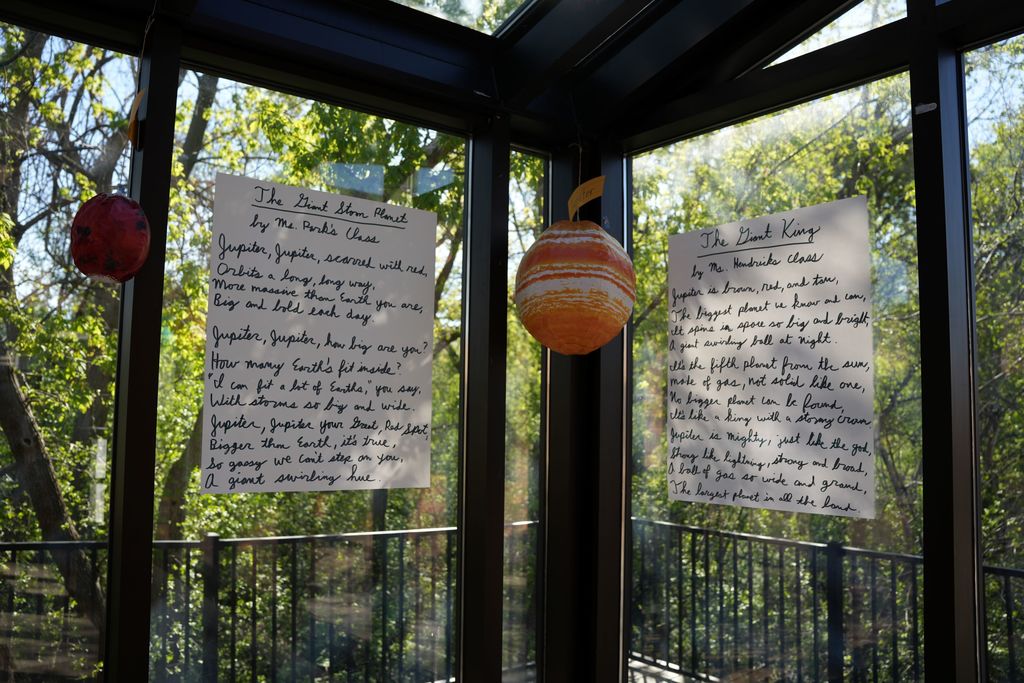 The Giant Storm Planet
by Ms. Park's Class
Jupiter, Jupiter, scarred with red,
Orbits a long, long way,
More massive than Earth you are,
Big and bold each day.
Jupiter, Jupiter, how big are you?
How many Earth's fit inside?
"I can fit a lot of Earths," you say,
With storms so big and wide.
Jupiter, Jupiter your Great, Red Spot,
Bigger than Earth, it's true,
So gassy we can't step on you,
A giant swirling hue.
The Giant King
by Ms. Hendricks class
Jupiter is brown, red, and tan,
The biggest planet we know and can,
It spins in space so big and bright,
A giant swirling ball at night.
It's the fifth planet from the sun,
made of gas, not solid like one,
No bigger planet can be found,
It's like a king with a stormy crown
Jupiter is mighty, just like the god,
Strong like lightning, strong and broad,
A ball of gas so wide and grand,
The largest planet in all the land.